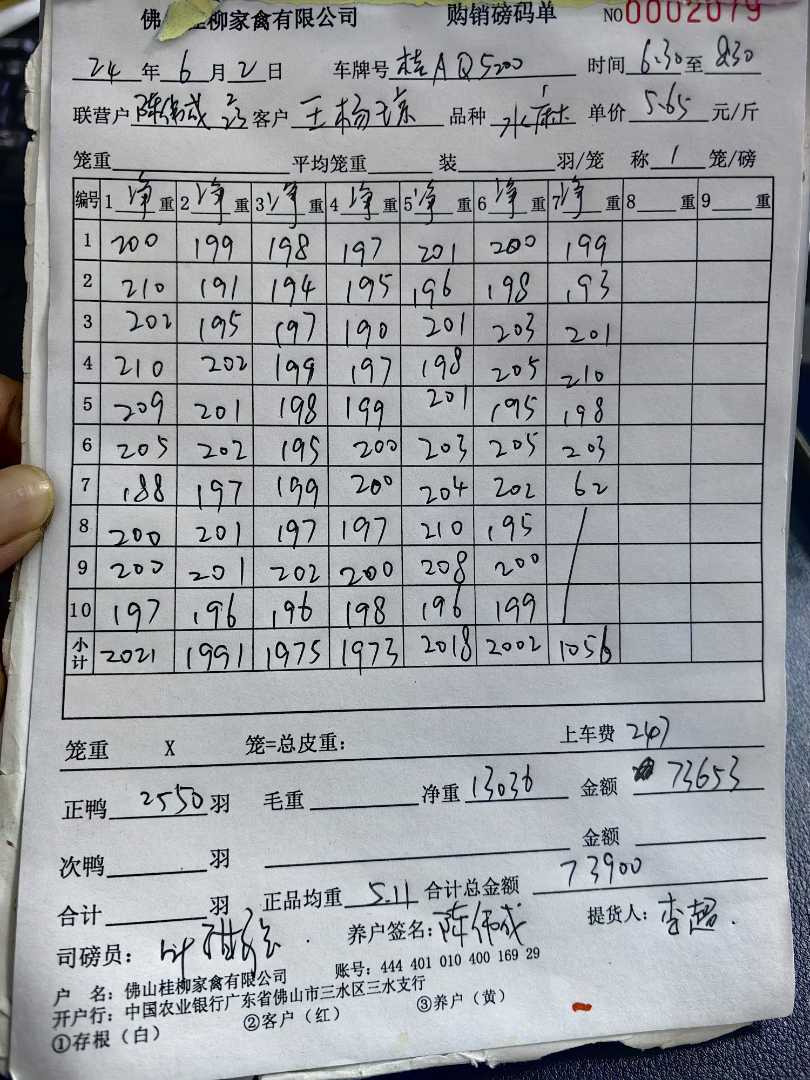 佛山桂柳家禽有限公司 购销磅码单 NO 0002079
24 年 6 月 2 日 车牌号 桂A Q5200 时间 6.30 至 830
联营户 陈伟成 客户 王杨 品种 水麻 单价 5.65 元/斤
笼重 平均笼重 装 羽/笼 称 1 笼/磅
编号 1 净 重 2 净 重 3 净 重 4 净 重 5 净 重 6 净 重 7 净 重 8 重 9 重
1 200 199 198 197 201 200 199
2 210 191 194 195 196 198 193
3 202 195 197 190 201 203 201
4 210 202 199 197 198 205 210
5 209 201 198 199 201 195 198
6 205 202 195 200 203 205 203
7 188 197 199 200 204 202 62
8 200 201 197 197 210 195
9 200 201 202 200 208 200
10 197 196 196 198 196 199
小计 2021 1991 1975 1973 2018 2002 1056
笼重 X 笼=总皮重: 上车费 247
正鸭 2550 羽 毛重 净重 13036 金额 73653
次鸭 羽 金额
合计 羽 正品均重 5.11 合计总金额 73900
司磅员: 叶 养户签名: 陈伟成 提货人: 李超.
户 名: 佛山桂柳家禽有限公司 账号: 444 401 010 400 169 29
开户行: 中国农业银行广东省佛山市三水区三水支行
①存根（白） ②客户（红） ③养户（黄）